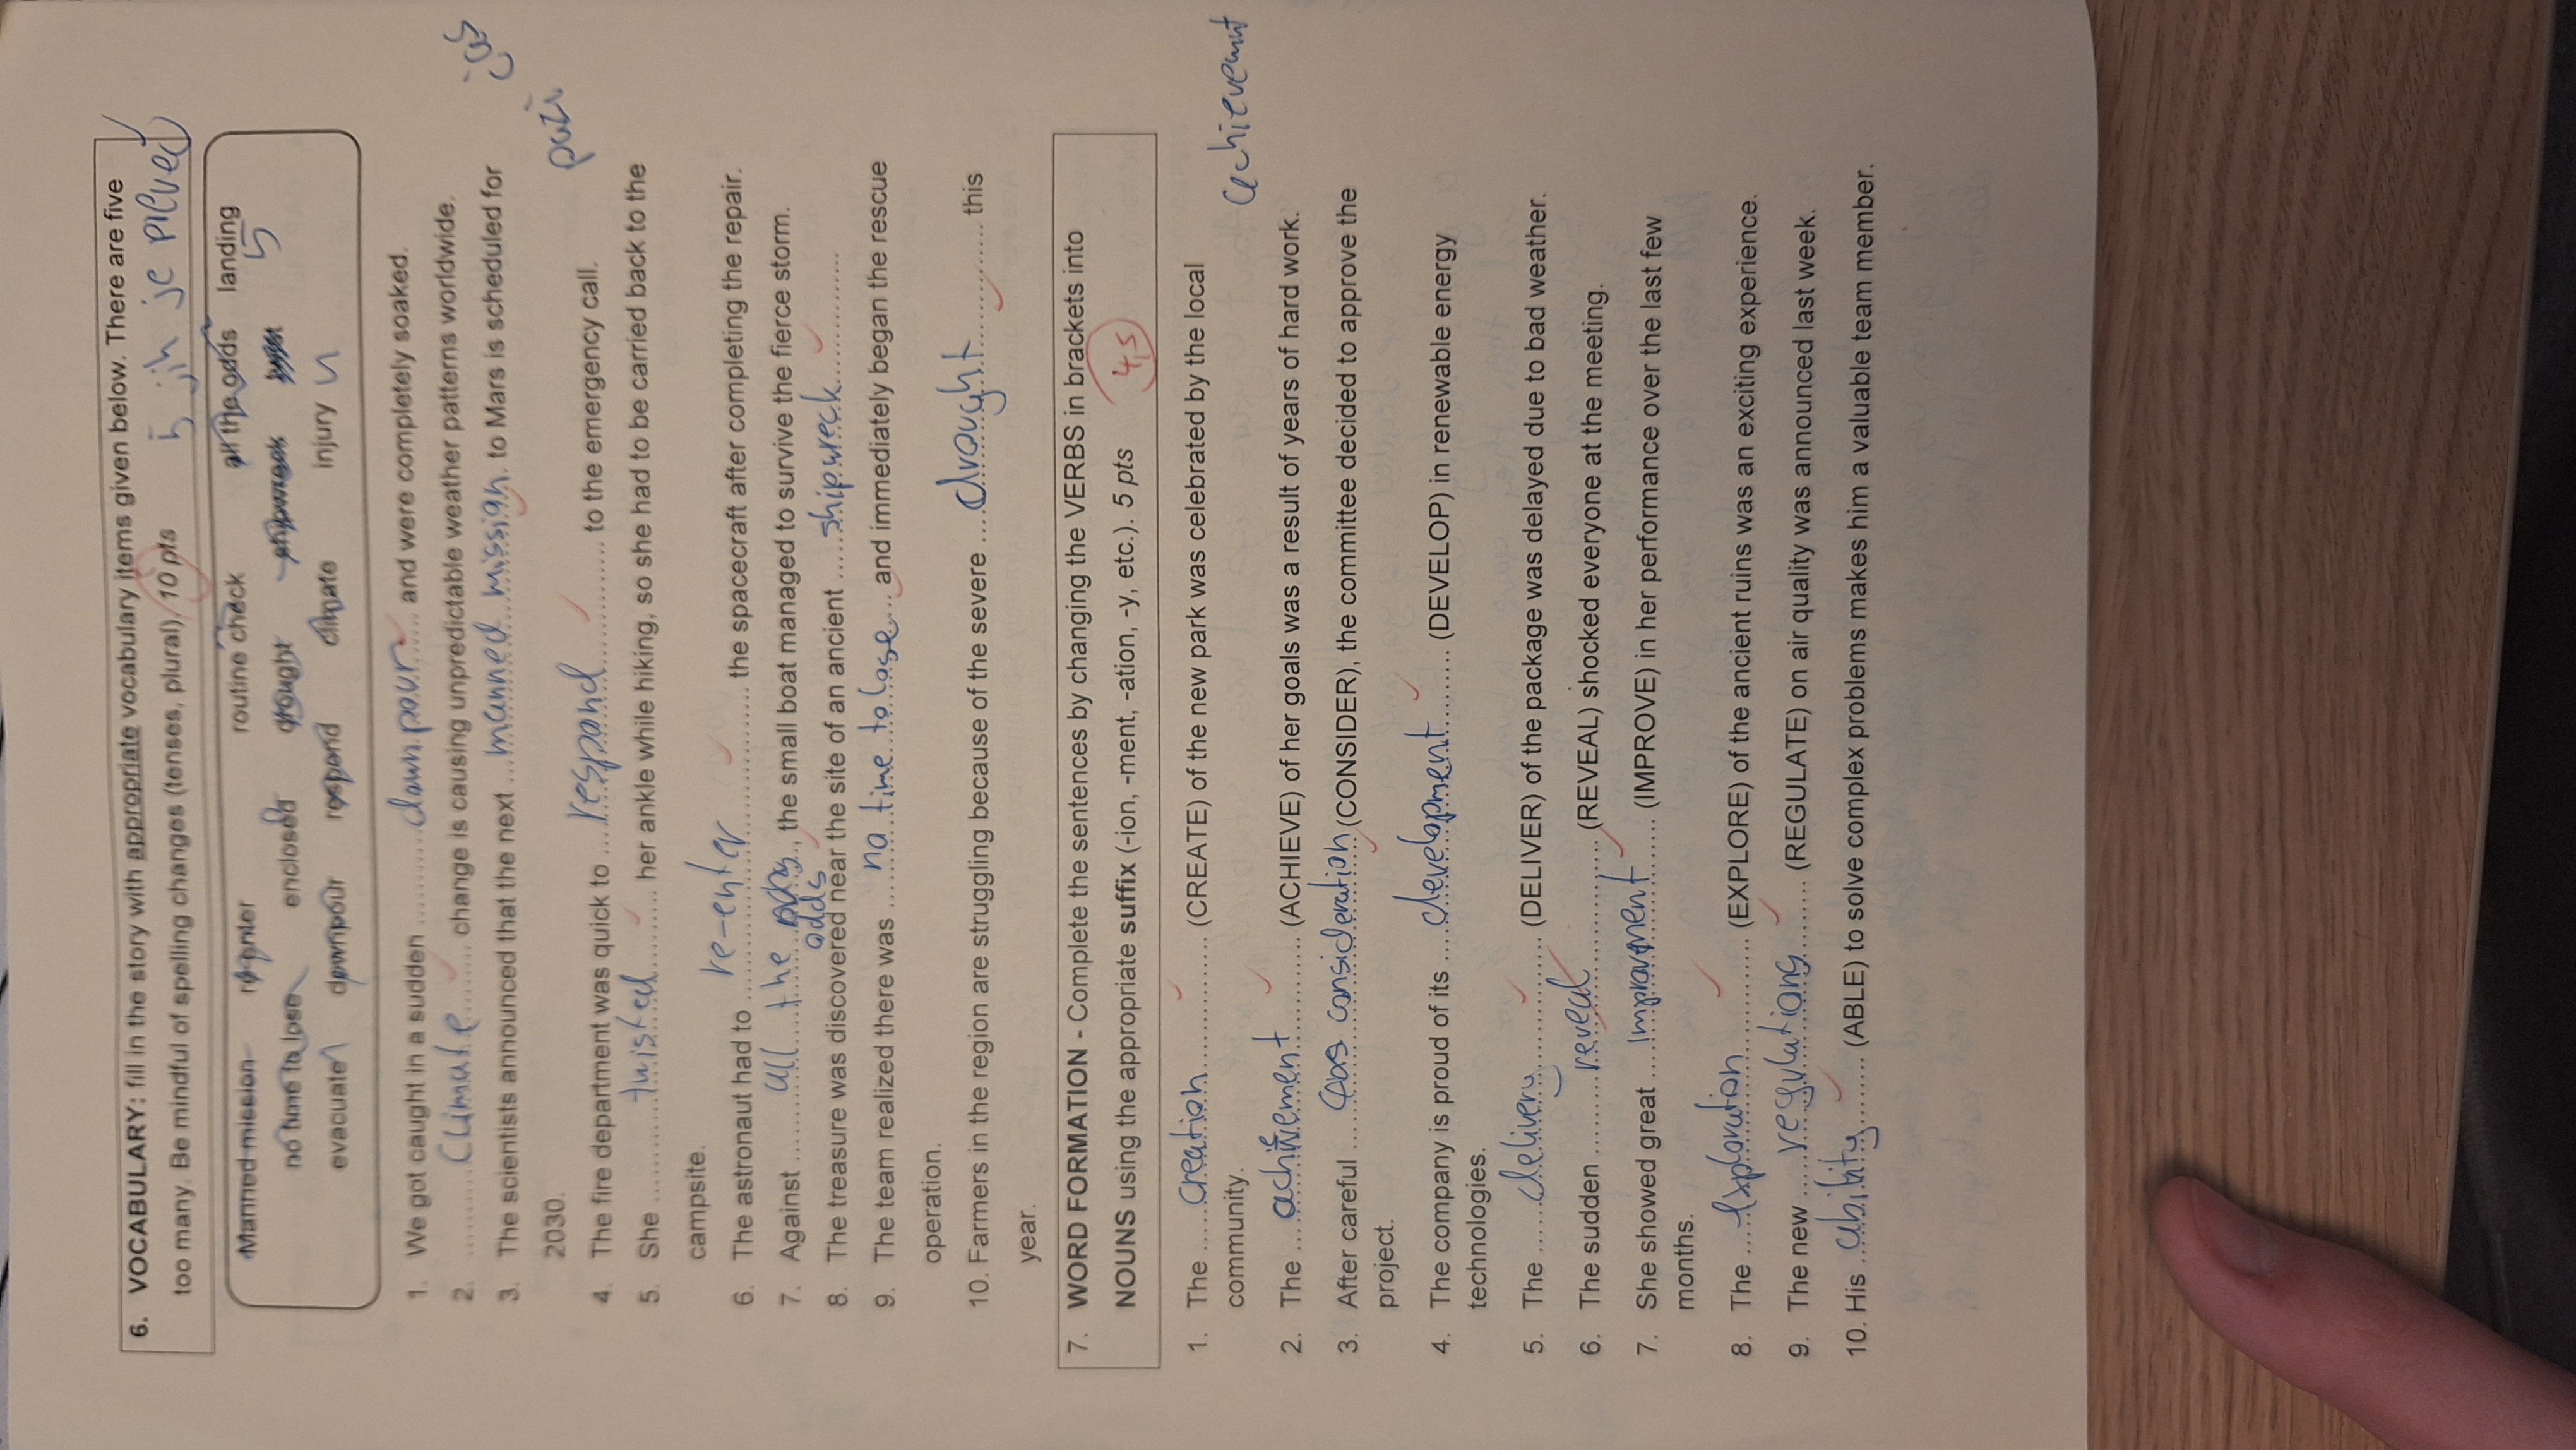 6. VOCABULARY: fill in the story with appropriate vocabulary items given below. There are five
too many. Be mindful of spelling changes (tenses, plural). 10 pts
5 jih je preveč
Manned mission re-enter routine check all the odds landing
5
no time to lose enclosed drought shipwreck
evacuate downpour respond climate injury
1. We got caught in a sudden downpour and were completely soaked.
2. Climate change is causing unpredictable weather patterns worldwide.
3. The scientists announced that the next manned mission to Mars is scheduled for
2030.
pazi čas
4. The fire department was quick to respond to the emergency call.
5. She twisted her ankle while hiking, so she had to be carried back to the
campsite.
6. The astronaut had to re-enter the spacecraft after completing the repair.
7. Against all the odds, the small boat managed to survive the fierce storm.
odds
8. The treasure was discovered near the site of an ancient shipwreck
9. The team realized there was no time to lose and immediately began the rescue
operation.
10. Farmers in the region are struggling because of the severe drought this
year.
7. WORD FORMATION - Complete the sentences by changing the VERBS in brackets into
NOUNS using the appropriate suffix (-ion, -ment, -ation, -y, etc.). 5 pts 4,5
1. The creation (CREATE) of the new park was celebrated by the local
community.
achievement
2. The achievement (ACHIEVE) of her goals was a result of years of hard work.
3. After careful consideration (CONSIDER), the committee decided to approve the
project.
4. The company is proud of its development (DEVELOP) in renewable energy
technologies.
5. The delivery (DELIVER) of the package was delayed due to bad weather.
6. The sudden reveal (REVEAL) shocked everyone at the meeting.
7. She showed great improvment (IMPROVE) in her performance over the last few
months.
8. The exploration (EXPLORE) of the ancient ruins was an exciting experience.
9. The new regulations (REGULATE) on air quality was announced last week.
10. His ability (ABLE) to solve complex problems makes him a valuable team member.